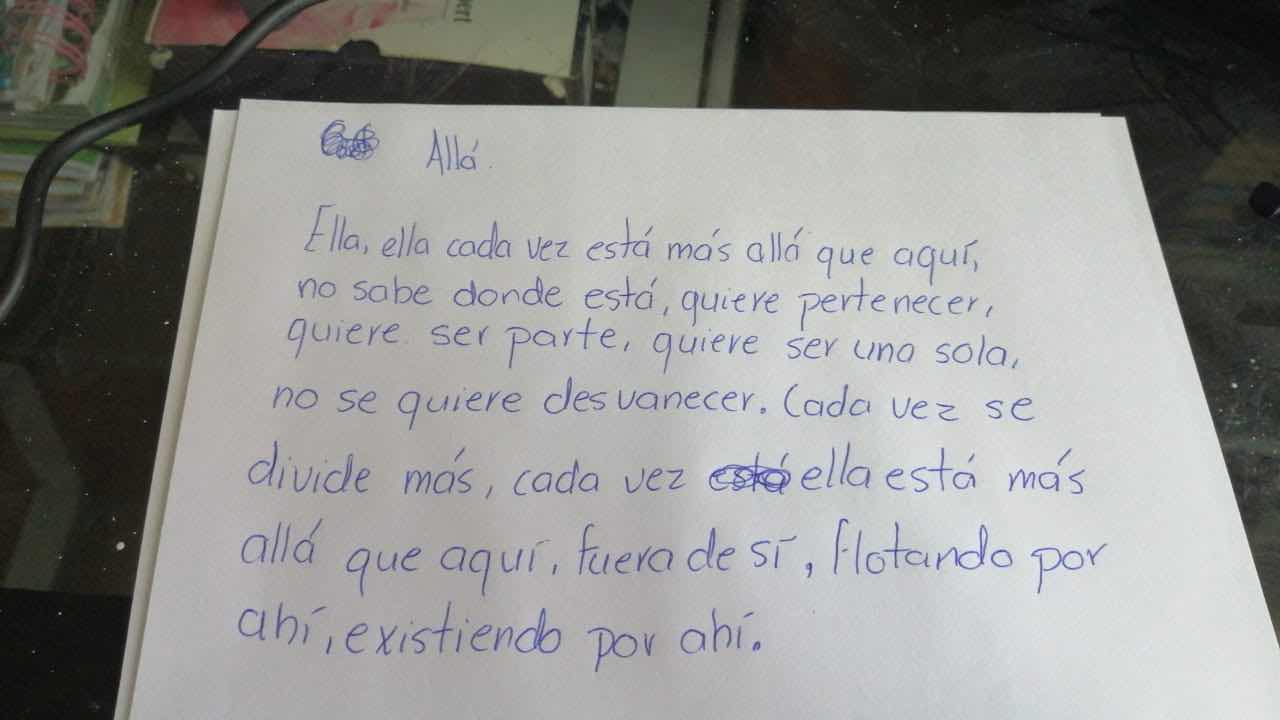 pert
Allá.
Ella, ella cada vez está más allá que aquí,
no sabe donde está, quiere pertenecer,
quiere ser parte, quiere ser una sola,
no se quiere desvanecer. Cada vez se
divide más, cada vez está ella está más
allá que aquí, fuera de sí, flotando por
ahí, existiendo por ahí.